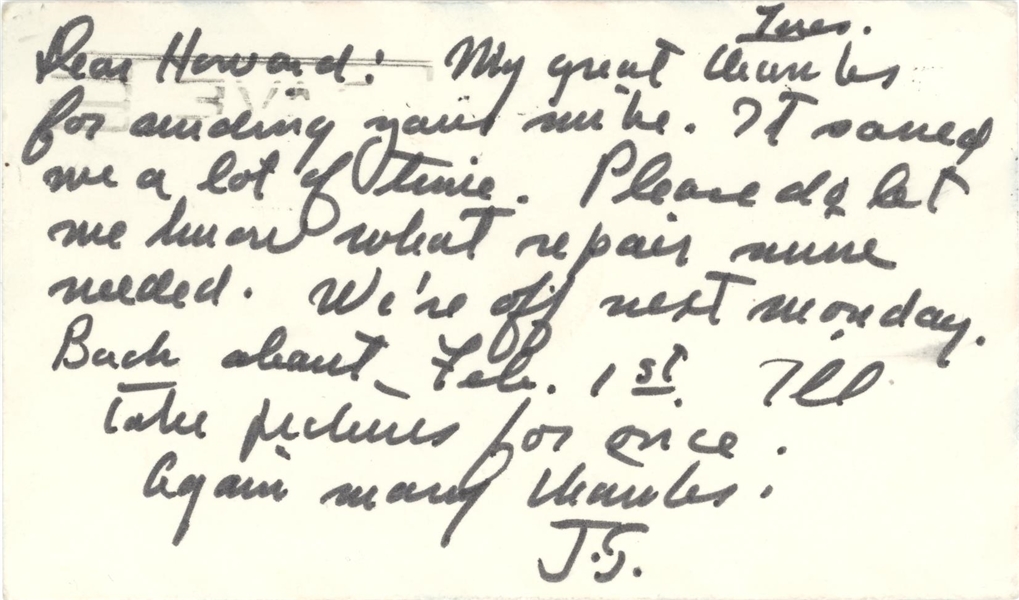 Tues.
Dear Howard: My great thanks
for sending your mike. It saved
me a lot of time. Please do let
me know what repair mine
needed. We're off next monday.
Back about Feb. 1st. I'll
take pictures for once.
Again many thanks.
J.G.